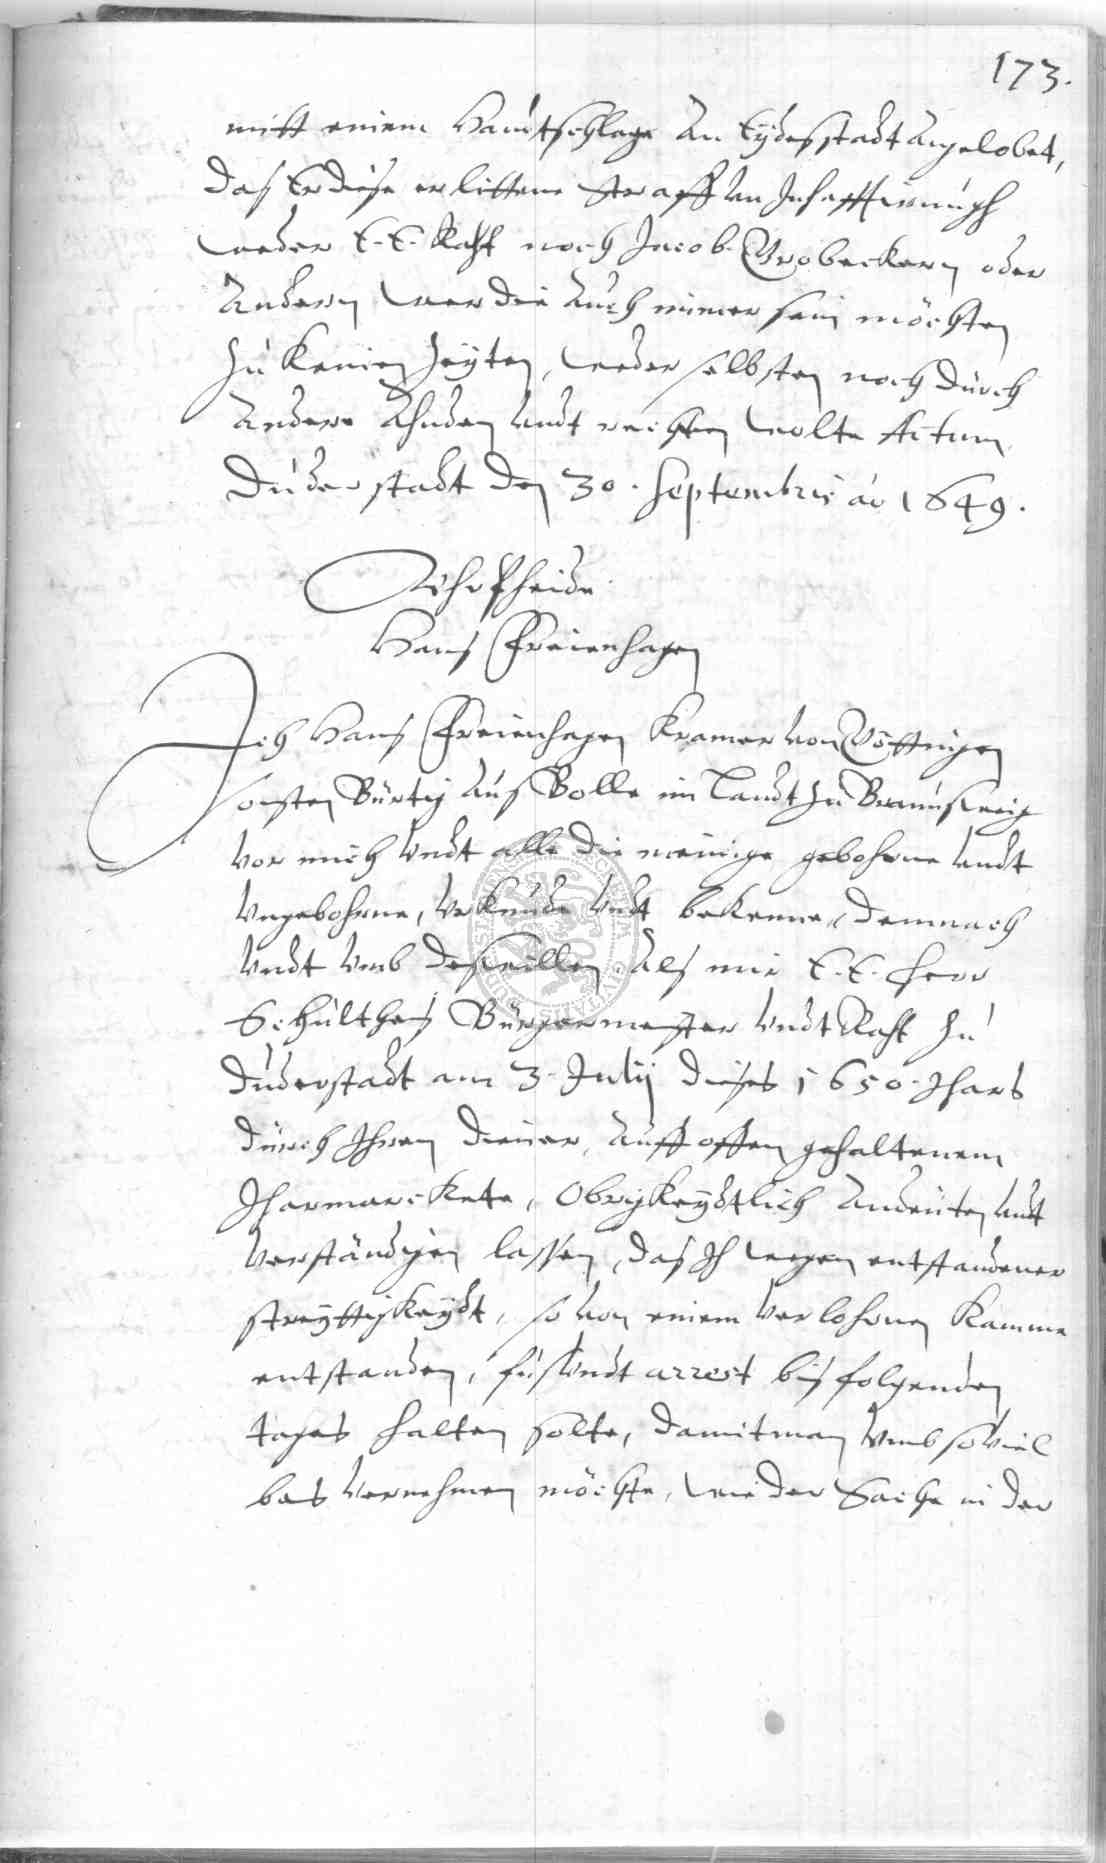 173.
mitt einem Handtschlage an Eydesstadt angelobet,
das Er diese erlittene straff undt
weder E. E. Raht noch Jacob Brobeckern oder
Andern, wer die auch immer sein möchten
zu keinen Zeyten, weder selbsten noch durch
Andere Ahnden undt rechen wolte Actum
Duderstadt den 30. Septembris ao 1649.
Uhrpheide
Hans Freienhagen
Ich Hans Freienhagen Kramer von Göttingen
sonsten Bürtig aus Bolle im Landt zu Braunschweig
vor mich undt alle die meinige gebohrne undt
Ungebohrne, Urkunde undt bekenne, demnach
undt umb deswillen als mir E. E. Herr
Schultheis Bürgermeister undt Raht zu
Duderstadt am 3. July dieses 1650. Jhars
durch Ihren diener, auff offen gehaltenem
Jharmarckete, Obrigkeydtlich andeuten undt
verständigen lassen, das Ich wegen entstandener
streyttigkeydt, so von einem verlohrnen Kamme
entstanden, arrest bis folgenden
tages halten solte, damit man umb so viel
bas vernehmen möchte, wie der Sache in der